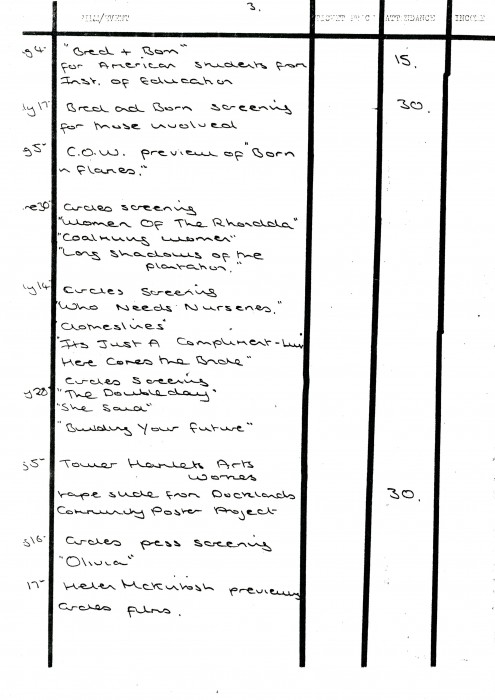 3.
FILM/EVENT TICKET PRICE ATTENDANCE INCOME
g4 "Bred + Born"
for American students from 15.
Inst. of Education
ly 17 Bred ad Born screening 30.
for those involved
g5 C.O.W. preview of "Born
n Flames."
ne30 Circles screening
"Women Of The Rhondda"
"Coalmining women"
"Long Shadows of the
plantation."
ly14 Circles Screening
"Who Needs Nurseries."
"Clotheslines"
"Its Just A Compliment-Luv
Here Comes the Bride"
Circles Screening
y28 "The Doubleday"
"She Said"
"Building Your Future"
g5 Tower Hamlets Arts
Works
tape slide from Docklands 30.
Community Poster Project
g16 Circles press screening
"Olivia"
17 Helen McKintosh previewing
Circles films.